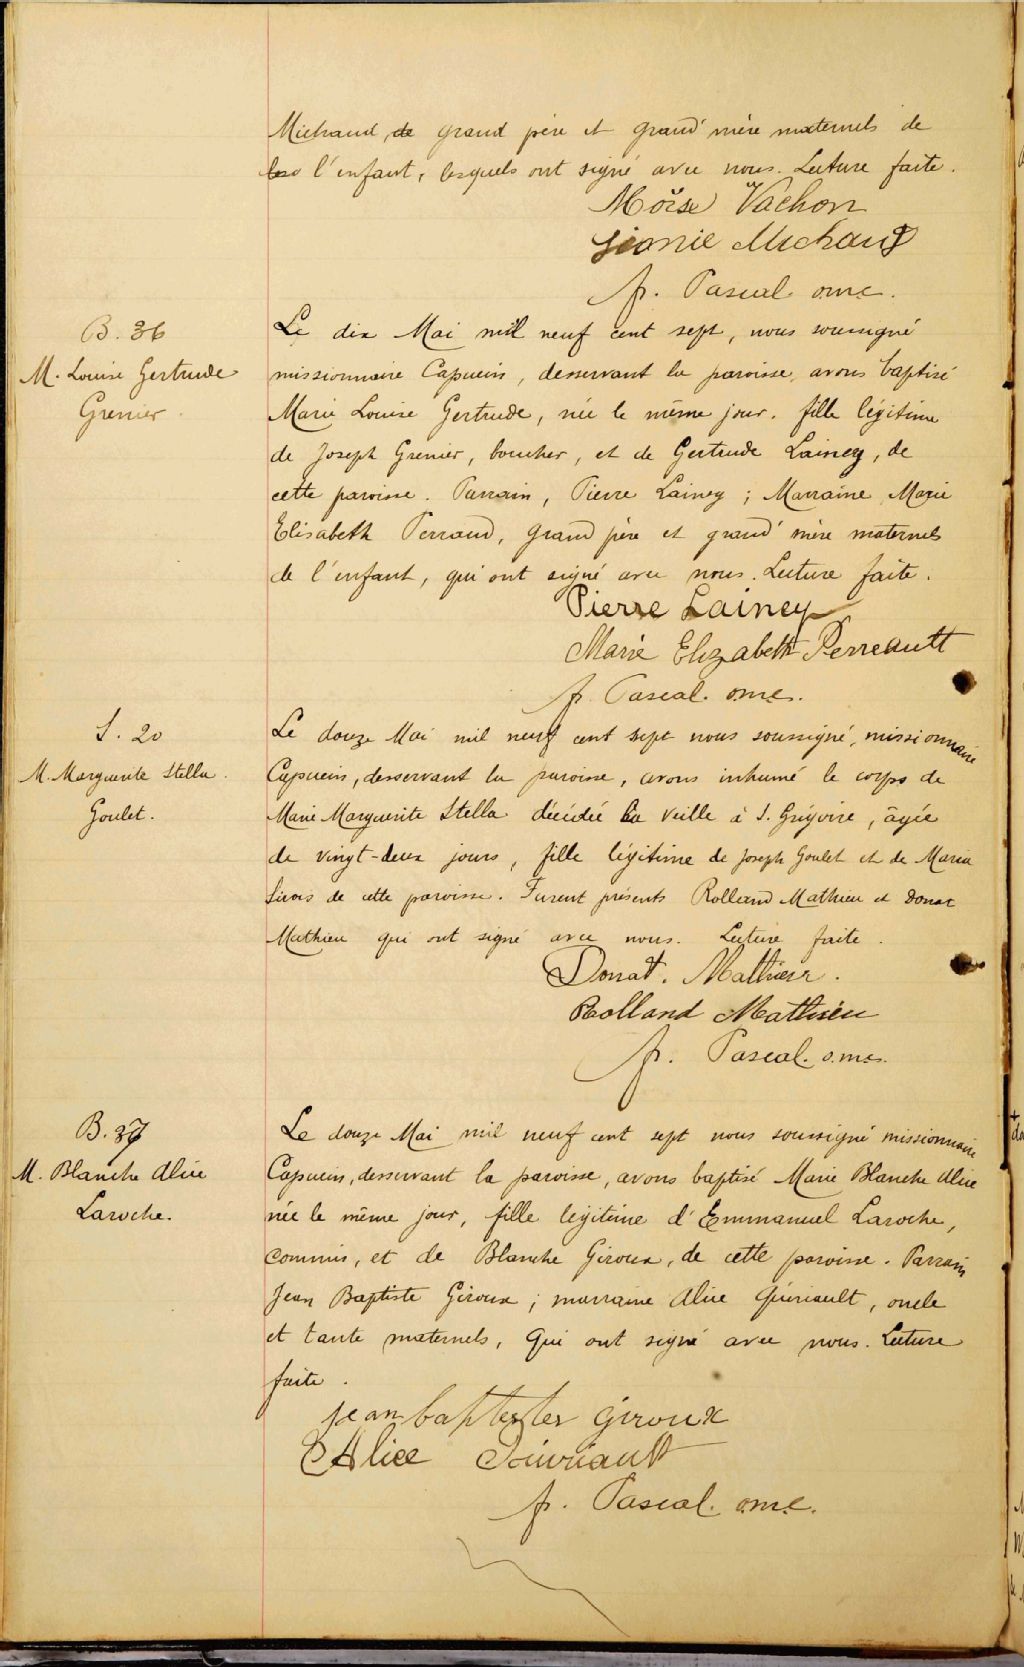 Michaud, de grand père et grand'mère maternels de
l'enfant, lesquels ont signé avec nous. Lecture faite.
Moïse Vachon
Michaud
fr. Pascal o.m.c.
B. 36
M. Louise Gertrude
Grenier
Le dix Mai mil neuf cent sept, nous soussigné
missionnaire Capucin, desservant la paroisse, avons baptisé
Marie Louise Gertrude, née le même jour, fille légitime
de Joseph Grenier, boucher, et de Gertrude Lainey, de
cette paroisse. Parrain, Pierre Lainey; Marraine Marie
Elisabeth Perraud, grand père et grand'mère maternels
de l'enfant, qui ont signé avec nous. Lecture faite.
Pierre Lainey
Marie Elizabeth Perreault
fr. Pascal. o.m.c.
S. 20
M. Marguerite Stella.
Goulet.
Le douze Mai mil neuf cent sept nous soussigné, missionnaire
Capucin, desservant la paroisse, avons inhumé le corps de
Marie Marguerite Stella décédée la veille à S. Grégoire, âgée
de vingt-deux jours, fille légitime de Joseph Goulet et de Maria
Sirois de cette paroisse. Furent présents Rolland Mathieu et Donat
Mathieu qui ont signé avec nous. Lecture faite.
Donat. Mathieu.
Rolland Mathieu
fr. Pascal. o.m.c.
B. 37
M. Blanche Alice
Laroche.
Le douze Mai mil neuf cent sept nous soussigné missionnaire
Capucin, desservant la paroisse, avons baptisé Marie Blanche Alice
née le même jour, fille légitime d'Emmanuel Laroche,
commis, et de Blanche Giroux, de cette paroisse. Parrain
Jean Baptiste Giroux; marraine Alice Guériault, oncle
et tante maternels, qui ont signé avec nous. Lecture
faite.
Giroux
Alice
fr. Pascal. o.m.c.